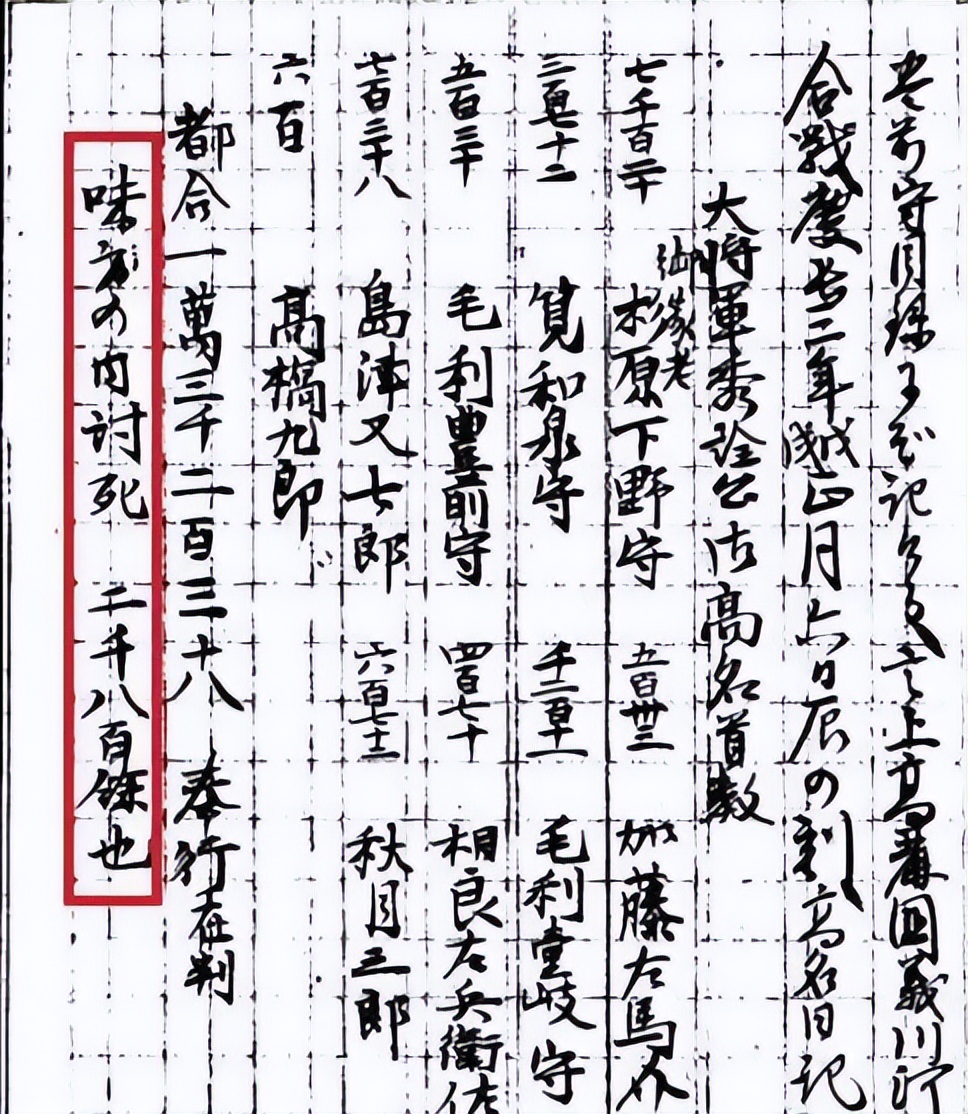 守目録
合戦慶長三年戊正月六日辰の刻高名日記
大将軍秀詮公御高名首数
御家老
七千百二十 杉原下野守 五百卅三 加藤左馬介
三百七十二 筧和泉守 千二百十一 毛利壹岐守
五百三十 毛利豊前守 四百七十 相良左兵衛佐
七百三十八 島津又七郎 六百七十二 秋月三郎
六百 高橋九郎
都合一萬三千二百三十八 奉行在判
味方の内討死 二千八百餘也